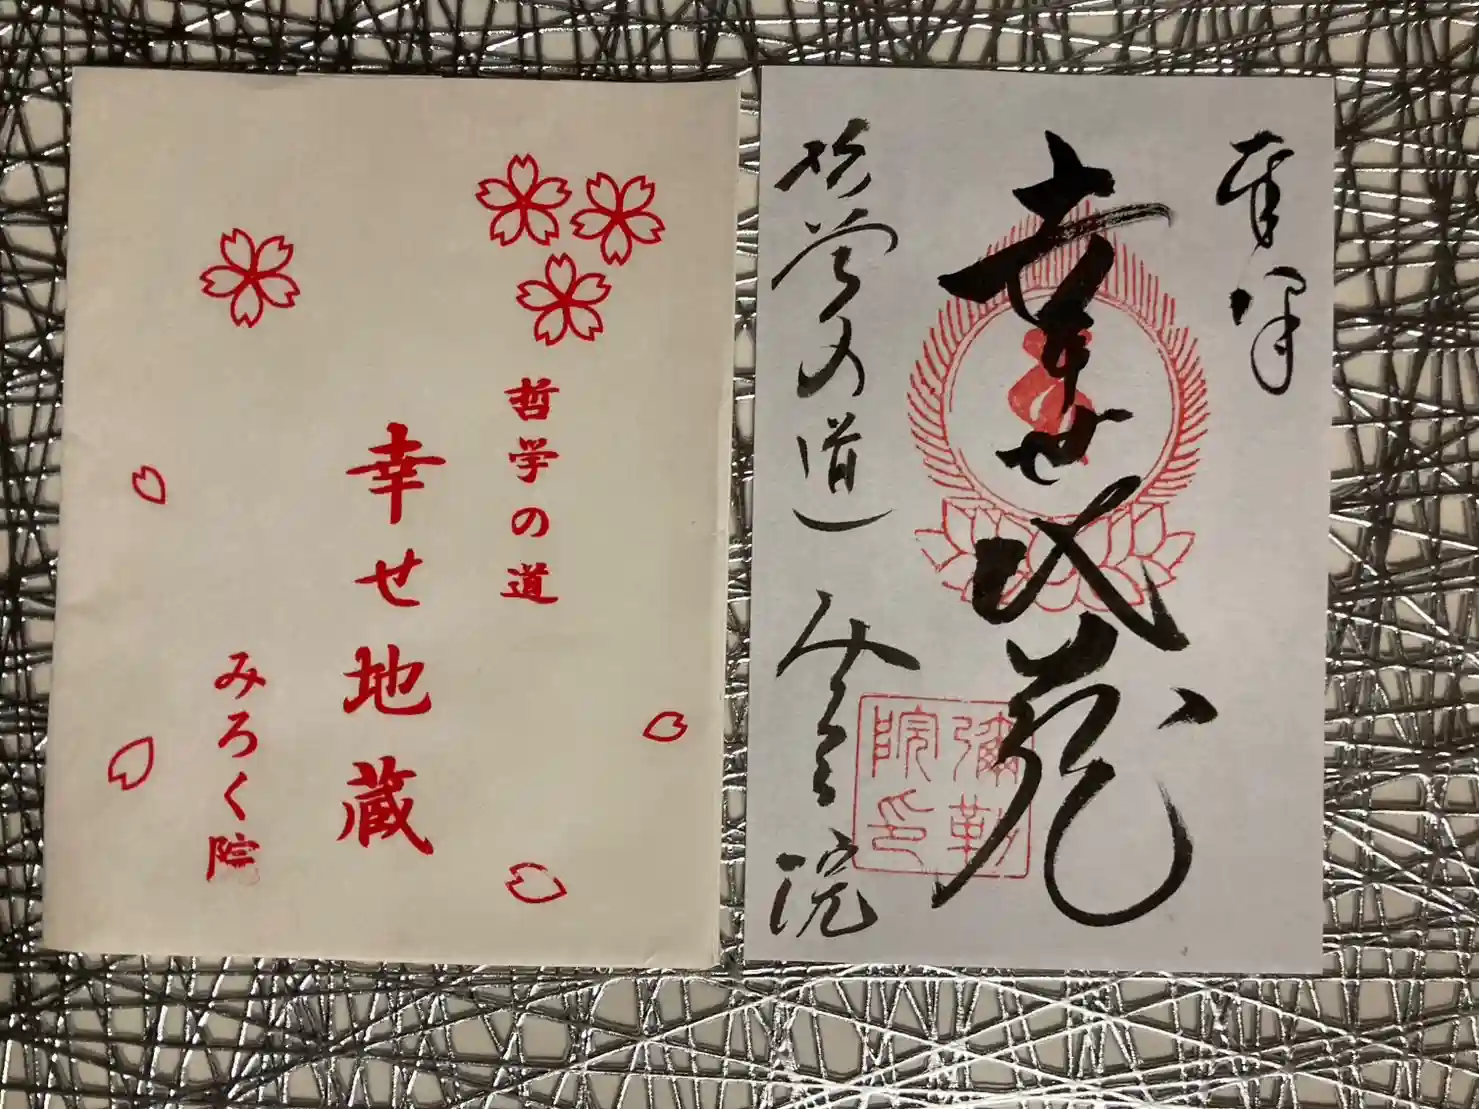 哲学の道
幸せ地蔵
みろく院
奉拝
幸せ地蔵
哲学の道 みろく院
彌勒
院印